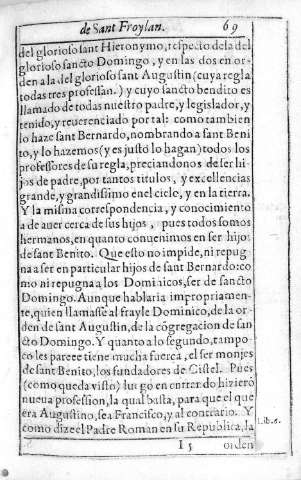 de Sant Froylan. 69
del glorioso sant Hieronymo, respecto de la del
glorioso sancto Domingo, y en las dos en or-
den a la del glorioso sant Augustin (cuya regla
todas tres professan.) y cuyo sancto bendito es
llamado de todas nuestro padre, y legislador, y
tenido, y reverenciado por tal: como tambien
lo haze sant Bernardo, nombrando a sant Beni
to, y lo hazemos (y es justo lo hagan) todos los
professores de su regla, preciandonos de ser hi-
jos de padre, por tantos titulos, y excellencias
grande, y grandissimo en el cielo, y en la tierra.
Y la misma correspondencia, y conocimiento
a de auer cerca de sus hijos, pues todos somos
hermanos, en quanto conuenimos en ser hijos
de sant Benito. Que esto no impide, ni repug
na a ser en particular hijos de sant Bernardo: co
mo ni repugna a los Dominicos, ser de sancto
Domingo. Aunque hablaria impropriamen-
te, quien llamasse al frayle Dominico, de la or-
den de sant Augustin, de la cõgregacion de san
cto Domingo. Y quanto a lo segundo, tampo-
co les pareee tiene mucha fuerca, el ser monjes
de sant Benito, los fundadores de Cistel. Pues
(como queda visto) luego en entrando hiziero
nueua profession, la qual basta, para que el que
era Augustino, sea Francisco, y al contrario. Y
como dize el Padre Roman en su Republica, la
Lib. 6.
I 5 orden